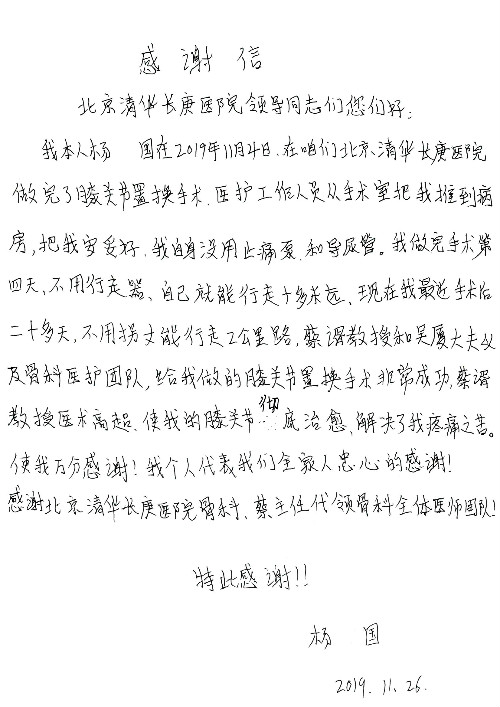 感谢信
北京清华长庚医院领导同志们您们好:
我本人杨 国在2019年11月4日.在咱们北京清华长庚医院
做完了膝关节置换手术.医护工作人员从手术室把我推到病
房,把我安妥好.我自身没用止痛泵.和导尿管。我做完手术第
四天、不用行走器、自己就能行走十多米远、现在我最近手术后
二十多天,不用拐丈能行走2公里路,蔡谞教授和吴厦大夫以
及骨科医护团队,给我做的膝关节置换手术非常成功,蔡谞
教授医术高超、使我的膝关节彻底治愈、解决了我疼痛之苦。
使我万分感谢!我个人代表我们全家人忠心的感谢!
感谢北京清华长庚医院骨科、蔡主任代领骨科全体医师团队!
特此感谢!!
杨 国
2019.11.26.